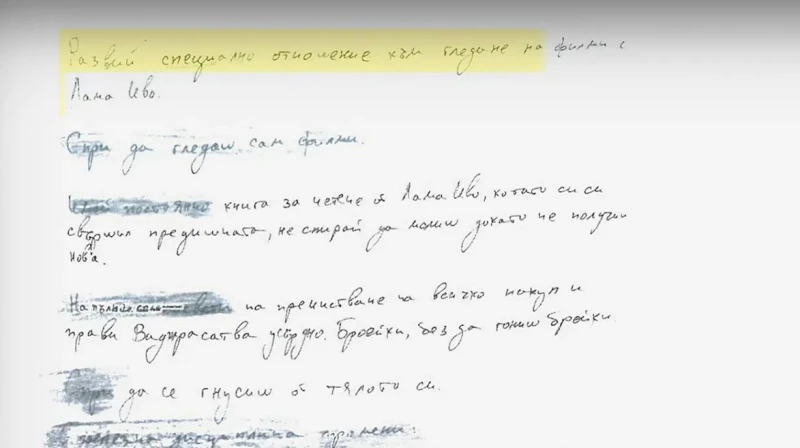 Развий специално отношение към гледане на филми с
Лама Иво.
Спри да гледаш сам филми.
постоянно книга за четене от Лама Иво, когато си си
свършил предишната, не спирай да молиш докато не получиш
нова.
на пречистване на всичко накуп и
прави Ваджрасатва усърдно. Бройки, без да гониш бройки.
Спри да се гнусиш от тялото си.
желязна дисциплина